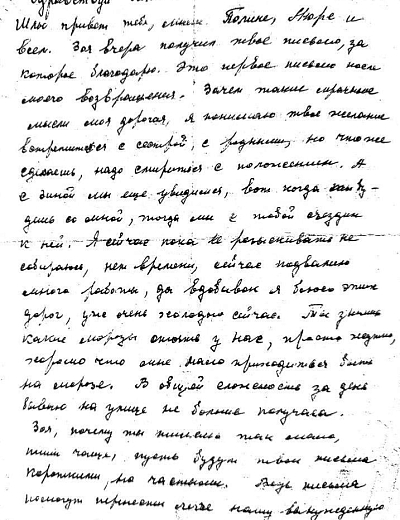 Шлю привет тебе, Полине, Нюре и
всем. Зоя вчера получил твое письмо, за
которое благодарю. Это первое письмо после
моего возвращения. Зачем такие мрачные
мысли моя дорогая, я понимаю твое желание
встретиться с сестрой, с родными, но что же
сделаешь, надо смириться с положением. А
с Зиной мы еще увидимся, вот когда бу-
дешь со мной, тогда мы с тобой съездим
к ней. Я сейчас пока не разыскивать не
собираюсь, нет времени, сейчас подвалило
много работы, да вдобавок я боюсь этих
дорог, уже очень холодно сейчас. Ты знаешь
какие морозы опять у нас, просто жутко,
хорошо что мне мало приходиться быть
на морозе. В общей сложности за день
бываю на улице не больше получаса.
Зоя, почему ты пишешь так мало,
пиши чаще, пусть будут твои письма
короткими, но частыми. Ведь письма
помогут перенести легче нашу вынужденную